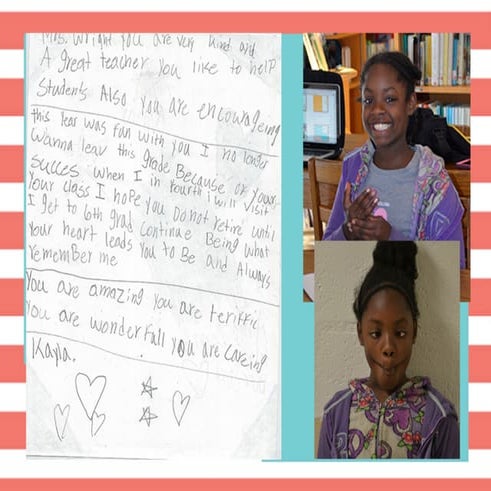 Mrs. Wright you are very kind and
A great teacher you like to help
Students Also you are encouradeing
this year was fun with you I no longer
wanna leav this grade Because or your
succes when I in fourth i will visit
Your class I hope you Do not retire until
I get to 6th grad continue Being what
Your heart leads you to Be and Always
remember me
You are amazing you are teriffic
You are wonderfall you are careing
Kayla.